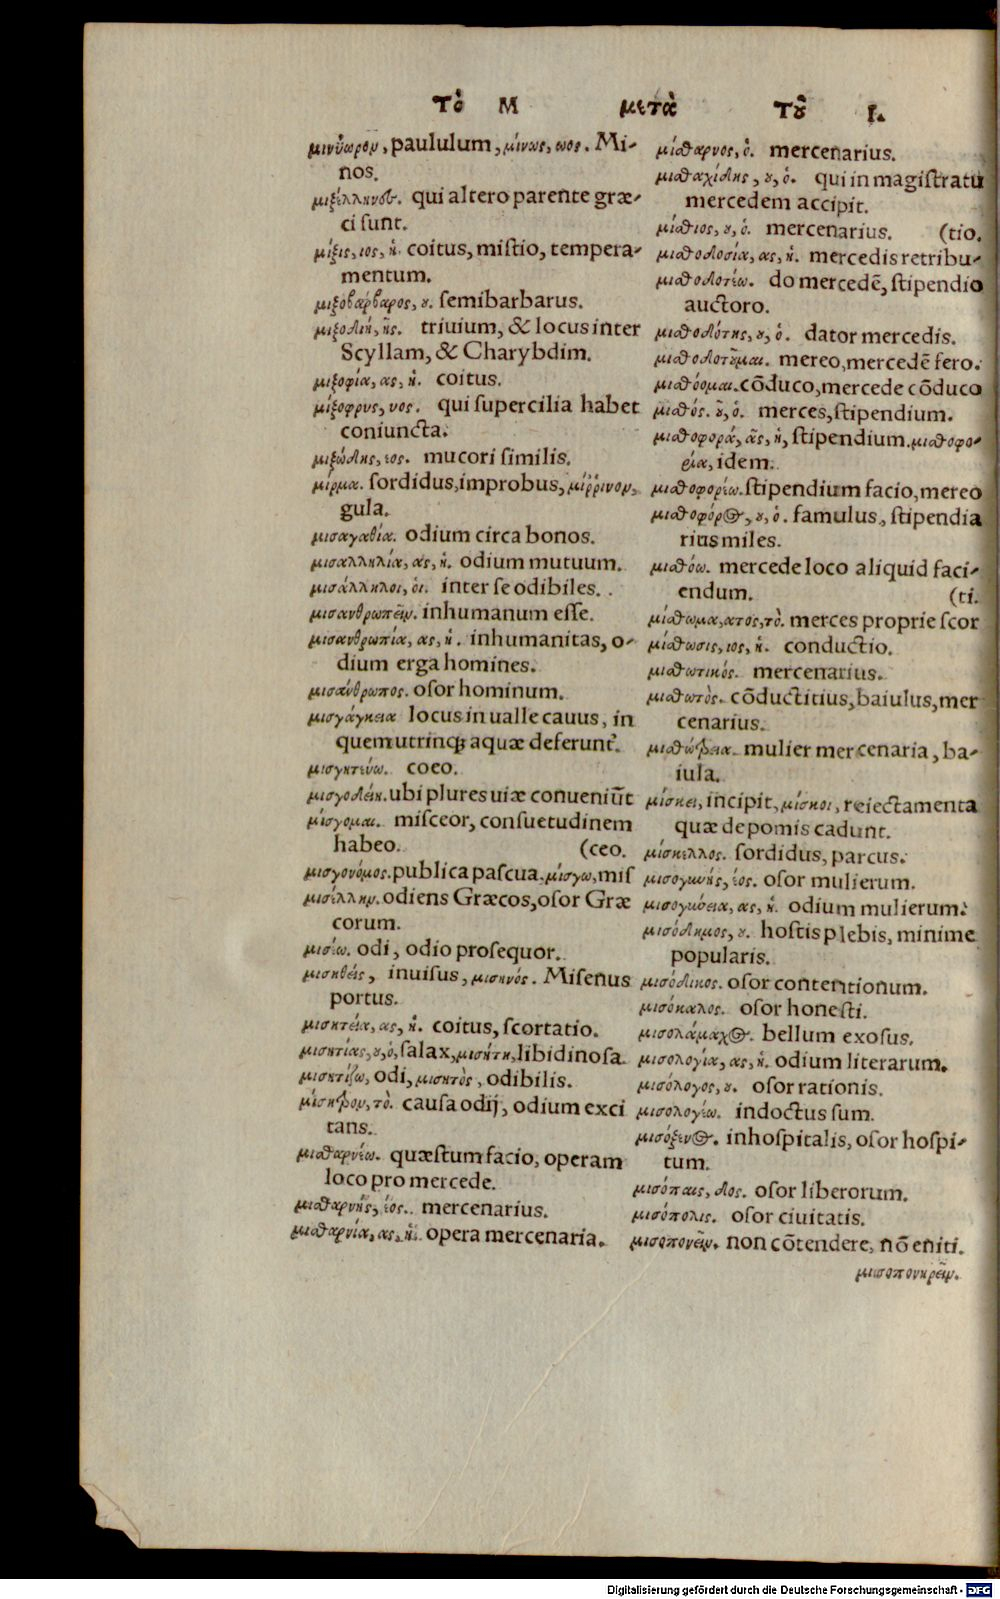 Τὸ Μ μετὰ Τοῦ Ι.
μινύωρον, paululum, μίνως, ωος. Mi-
nos.
μιξέλληνες. qui altero parente græ-
ci sunt.
μίξις, ιος, ἡ. coitus, mistio, tempera-
mentum.
μιξοβάρβαρος, ου. semibarbarus.
μιξοδίη, ης. triuium, & locus inter
Scyllam, & Charybdim.
μιξοφία, ας, ἡ. coitus.
μίξοφρυς, υος. qui supercilia habet
coniuncta.
μιξώδης, εος. mucori similis.
μίρμα. sordidus, improbus, μίῤῥινον,
gula.
μισαγαθία. odium circa bonos.
μισαλληλία, ας, ἡ. odium mutuum.
μισάλληλοι, οἱ. inter se odibiles.
μισανθρωπεῖν. inhumanum esse.
μισανθρωπία, ας, ἡ. inhumanitas, o-
dium erga homines.
μισάνθρωπος. osor hominum.
μισγάγκεια locus in ualle cauus, in
quem utrinq; aquæ deferunt.
μισγητεύω. coeo.
μισγοδίη. ubi plures uiæ conueniūt
μίσγομαι. misceor, consuetudinem
habeo. (ceo.
μισγονόμος. publica pascua. μίσγω, mis
μισέλλην. odiens Græcos, osor Græ
corum.
μισέω. odi, odio prosequor.
μισηθείς, inuisus, μισηνός. Misenus
portus.
μισητεία, ας, ἡ. coitus, scortatio.
μισητίας, ου, ὁ, salax, μισήτη, libidinosa.
μισητίζω, odi, μισητὸς, odibilis.
μίσηθρον, τὸ. causa odij, odium exci
tans.
μισθαρνέω. quæstum facio, operam
loco pro mercede.
μισθαρνής, έος. mercenarius.
μισθαρνία, ας, ἡ. opera mercenaria.
μίσθαρνος, ὁ. mercenarius.
μισθαχίδης, ου, ὁ. qui in magistratu
mercedem accipit.
μίσθιος, ου, ὁ. mercenarius. (tio.
μισθοδοσία, ας, ἡ. mercedis retribu-
μισθοδοτέω. do mercedē, stipendio
auctoro.
μισθοδότης, ου, ὁ. dator mercedis.
μισθοδοτοῦμαι. mereo, mercedē fero.
μισθόομαι. cōduco, mercede cōduco
μισθός. οῦ, ὁ. merces, stipendium.
μισθοφορά, ᾶς, ἡ, stipendium. μισθοφο-
ρία, idem.
μισθοφορέω. stipendium facio, mereo
μισθοφόρος, ου, ὁ. famulus, stipendia
rius miles.
μισθόω. mercede loco aliquid faci-
endum. (ti.
μίσθωμα, ατος, τὸ. merces proprie scor
μίσθωσις, ιος, ἡ. conductio.
μισθωτικός. mercenarius.
μισθωτὸς. cōductitius, baiulus, mer
cenarius.
μισθώτρια. mulier mercenaria, ba-
iula.
μίσκει, incipit, μίσκοι, reiectamenta
quæ de pomis cadunt.
μίσκελλος. sordidus, parcus.
μισογυνής, έος. osor mulierum.
μισογύνεια, ας, ἡ. odium mulierum.
μισόδημος, ου. hostis plebis, minime
popularis.
μισόδικος. osor contentionum.
μισόκαλος. osor honesti.
μισολάμαχος. bellum exosus.
μισολογία, ας, ἡ. odium literarum.
μισόλογος, ου. osor rationis.
μισολογέω. indoctus sum.
μισόξενος. inhospitalis, osor hospi-
tum.
μισόπαις, δος. osor liberorum.
μισόπολις. osor ciuitatis.
μισοπονεῖν. non cōtendere, nō eniti.
μισοπονηρεῖν.
Digitalisierung gefördert durch die Deutsche Forschungsgemeinschaft - DFG